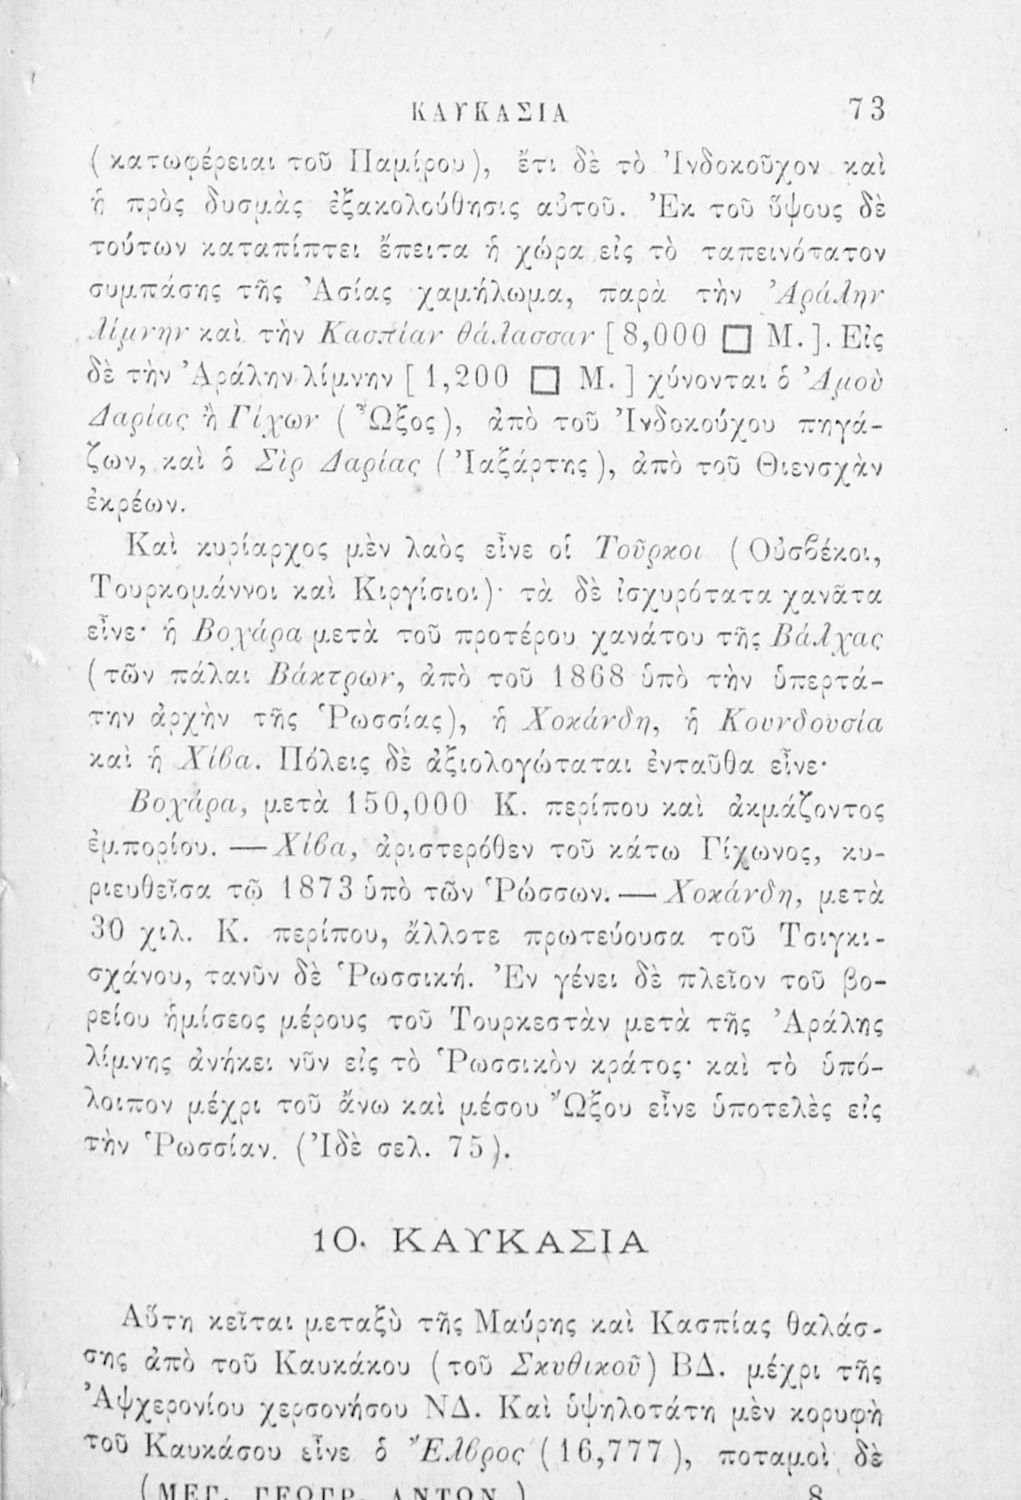 ΚΑΥΚΑΣΙΑ 73
(κατωφέρειαι τοῦ Παμίρου), ἔτι δὲ τὸ Ἰνδοκοῦχον καὶ
ἡ πρὸς δυσμὰς ἐξακολούθησις αὐτοῦ. Ἐκ τοῦ ὕψους δὲ
τούτων καταπίπτει ἔπειτα ἡ χώρα εἰς τὸ ταπεινότατον
συμπάσης τῆς Ἀσίας χαμήλωμα, παρὰ τὴν Ἀράλην
λίμνην καὶ τὴν Κασπίαν θάλασσαν [8,000 □ Μ.]. Εἰς
δὲ τὴν Ἀράλην λίμνην [1,200 □ Μ.] χύνονται ὁ Ἀμοὺ
Δαρίας ἢ Γίχων (Ὦξος), ἀπὸ τοῦ Ἰνδοκούχου πηγά-
ζων, καὶ ὁ Σὶρ Δαρίας (Ἰαξάρτης), ἀπὸ τοῦ Θιενσχὰν
ἐκρέων.
Καὶ κυρίαρχος μὲν λαὸς εἶνε οἱ Τοῦρκοι (Οὐσβέκοι,
Τουρκομάννοι καὶ Κιργίσιοι)· τὰ δὲ ἰσχυρότατα χανᾶτα
εἶνε· ἡ Βοχάρα μετὰ τοῦ προτέρου χανάτου τῆς Βάλχας
(τῶν πάλαι Βάκτρων, ἀπὸ τοῦ 1868 ὑπὸ τὴν ὑπερτά-
την ἀρχὴν τῆς Ῥωσσίας), ἡ Χοκάνδη, ἡ Κουνδουσία
καὶ ἡ Χίβα. Πόλεις δὲ ἀξιολογώταται ἐνταῦθα εἶνε·
Βοχάρα, μετὰ 150,000 Κ. περίπου καὶ ἀκμάζοντος
ἐμπορίου. — Χίβα, ἀριστερόθεν τοῦ κάτω Γίχωνος, κυ-
ριευθεῖσα τῷ 1873 ὑπὸ τῶν Ῥώσσων. — Χοκάνδη, μετὰ
30 χιλ. Κ. περίπου, ἄλλοτε πρωτεύουσα τοῦ Τσιγκι-
σχάνου, τανῦν δὲ Ῥωσσική. Ἐν γένει δὲ πλεῖον τοῦ βο-
ρείου ἡμίσεος μέρους τοῦ Τουρκεστὰν μετὰ τῆς Ἀράλης
λίμνης ἀνήκει νῦν εἰς τὸ Ῥωσσικὸν κράτος· καὶ τὸ ὑπό-
λοιπον μέχρι τοῦ ἄνω καὶ μέσου Ὤξου εἶνε ὑποτελὲς εἰς
τὴν Ῥωσσίαν. (Ἰδὲ σελ. 75).
10. ΚΑΥΚΑΣΙΑ
Αὕτη κεῖται μεταξὺ τῆς Μαύρης καὶ Κασπίας θαλάσ-
σης ἀπὸ τοῦ Καυκάκου (τοῦ Σκυθικοῦ) ΒΔ. μέχρι τῆς
Ἀψχερονίου χερσονήσου ΝΔ. Καὶ ὑψηλοτάτη μὲν κορυφὴ
τοῦ Καυκάσου εἶνε ὁ Ἔλβρος (16,777), ποταμοὶ δὲ
(ΜΕΓ. ΓΕΩΓΡ. ΑΝΤΩΝ.) 8